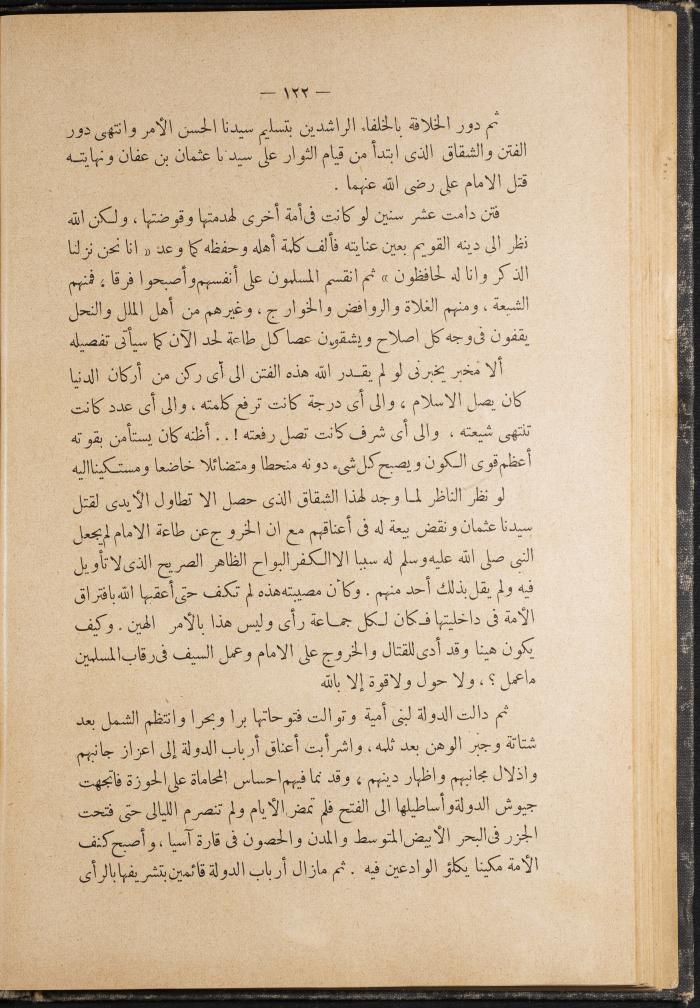 — ١٢٢ —
ثم دور الخلافة بالخلفاء الراشدين بتسليم سيدنا الحسن الأمر وانتهى دور
الفتن والشقاق الذى ابتدأ من قيام الثوار على سيدنا عثمان بن عفان ونهايتــه
قتل الامام على رضى الله عنهما .
فتن دامت عشر سنين لو كانت فى أمة أخرى لهدمتها وقوضتها ، ولكن الله
نظر الى دينه القويم بعين عنايته فألف كلمة أهله وحفظه كما وعد « انا نحن نزلنا
الذكر وانا له لحافظون » ثم انقسم المسلمون على أنفسهم وأصبحوا فرقا ، فمنهم
الشيعة ، ومنهم الغلاة والروافض والخوارج ، وغيرهم من أهل الملل والنحل
يقفون فى وجه كل اصلاح ويشقون عصا كل طاعة لحد الآن كما سيأتى تفصيله
ألا مخبر يخبرنى لو لم يقــدر الله هذه الفتن الى أى ركن من أركان الدنيا
كان يصل الاسلام ، والى أى درجة كانت ترفع كلمته ، والى أى عدد كانت
تنتهى شيعته ، والى أى شرف كانت تصل رفعته ! . . أظنه كان يستأمن بقوته
أعظم قوى الكون ويصبح كل شىء دونه منحطا ومتضائلا خاضعا ومستكينا اليه
لو نظر الناظر لمــا وجد لهذا الشقاق الذى حصل الا تطاول الأيدى لقتل
سيدنا عثمان ونقض بيعة له فى أعناقهم مع ان الخروج عن طاعة الامام لم يجعل
النبى صلى الله عليه وسلم له سببا الا الكفر البواح الظاهر الصريح الذى لا تأويل
فيه ولم يقل بذلك أحد منهم . وكأن مصيبته هذه لم تكف حتى أعقبها الله بافتراق
الأمة فى داخليتها فكان لكل جمــاعة رأى وليس هذا بالأمر الهين . وكيف
يكون هينا وقد أدى للقتال والخروج على الامام وعمل السيف فى رقاب المسلمين
ماعمل ؟ ، ولا حول ولا قوة إلا بالله
ثم دالت الدولة لبنى أمية وتوالت فتوحاتها برا وبحرا وانتظم الشمل بعد
شتاتة وجبر الوهن بعد ثلمه ، واشرأبت أعناق أرباب الدولة إلى اعزاز جانبهم
واذلال مجانبهم واظهار دينهم ، وقد نما فيهم احساس المحاماة على الحوزة فاتجهت
جيوش الدولة وأساطيلها الى الفتح فلم تمض الأيام ولم تنصرم الليالى حتى فتحت
الجزر فى البحر الأبيض المتوسط والمدن والحصون فى قارة آسيا ، وأصبح كنف
الأمة مكينا يكلؤ الوادعين فيه . ثم مازال أرباب الدولة قائمين بتشريفها بالرأى